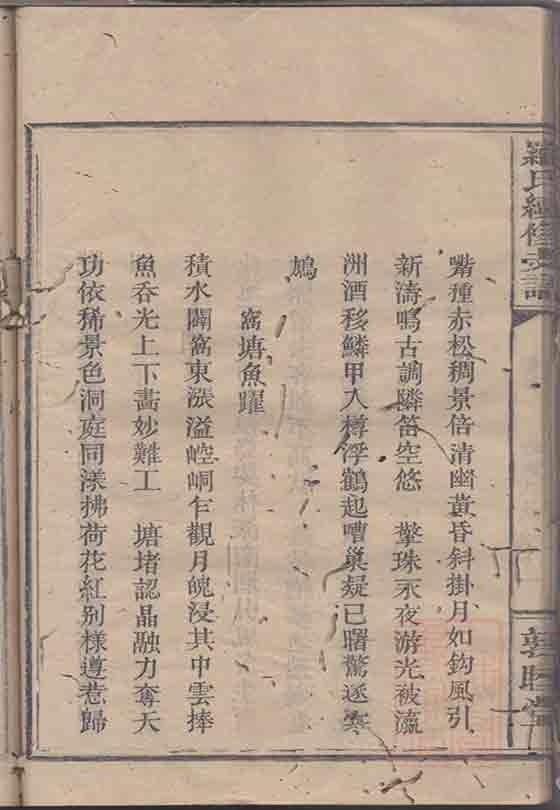 羅氏經修支譜
敦睦堂
嘴種赤松稠景倍清幽黃昏斜掛月如鈎風引
新濤鳴古調隣笛空悠　擎珠不夜游光被瀛
洲酒移鱗甲入樽浮鶴起嘈巢疑已曙驚逐寒
鳩
窩塘魚躍
積水闢窩東漲溢崆峒乍觀月魄浸其中雲捧
魚吞光上下畵妙難工　塘堵認晶融力奪天
功依稀景色洞庭同漾拂荷花紅別樣遵惹歸